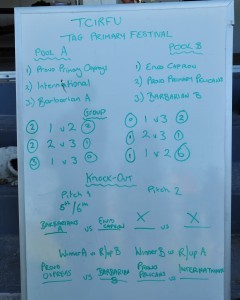 TCIRFU
-TAG PRIMARY FESTIVAL
POOL A
POOL B
1) Provo Primary Ospreys
2) International
3) Barbarian A
1) Enid Capron
2) Provo Primary Pelicans
3) BARBARIAN B
Group
② 1 v 2 ②
② 2 v 3 ①
③ 1 v 3
1 v 3 ②
2 v 3 ①
1 v 2
KNOCK-OUT
Pitch 1
Pitch 2
5th/6th
BARBARIANS A vs ENID CAPRON
X vs X
Winner A v R/up B
Winner B v R/up A
PROVO OSPREYS vs BARBARIAN B
PROVO PELICANS vs INTERNATIONAL